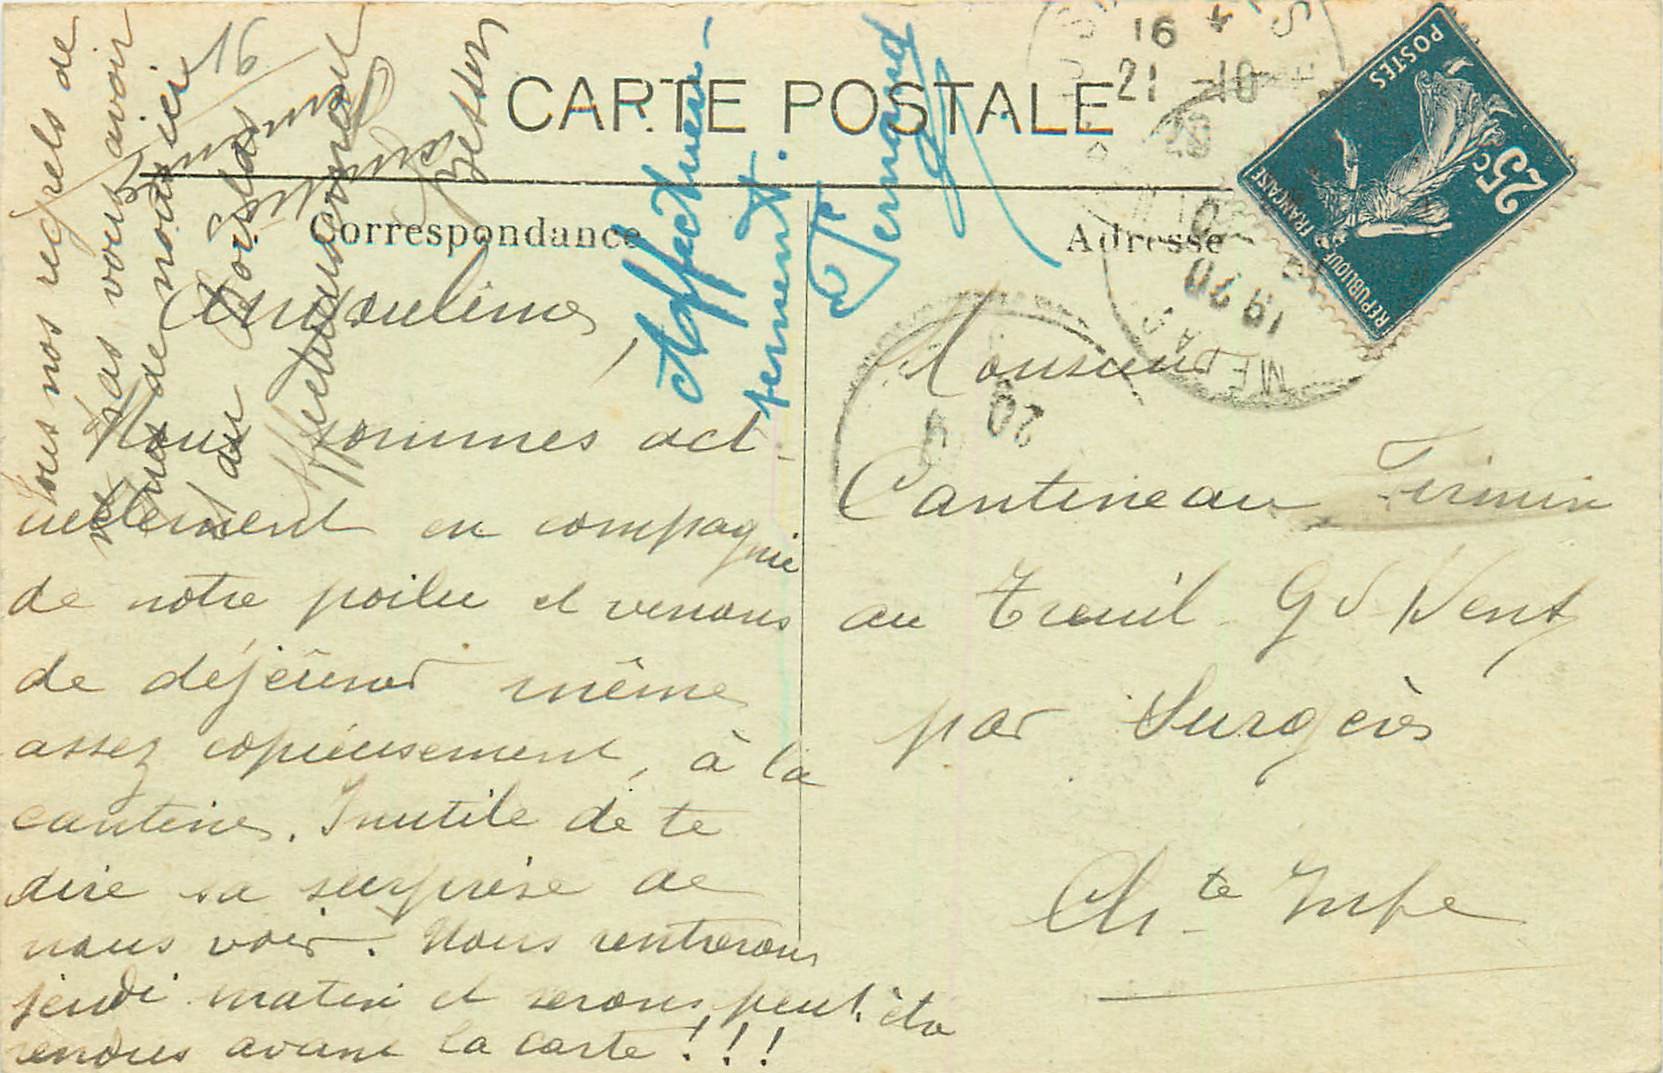 CARTE POSTALE
Correspondance
Adresse
Angoulême,
Nous sommes act-
uellement en compagnie
de notre poilu et venons
de déjeûner même
assez copieusement, à la
cantine. Inutile de te
dire sa surprise de
nous voir. Nous rentrerons
jeudi matin et serons peut. être
rendus avant la carte!!!
Tous nos regrets de
pas vous avoir
de nous ici
au
Affectueusement
Affectueu-
sement.
Fernand
Monsieur
Cantineau Firmin
au Treuil Gd Vent
par Surgères
Ch.te Infre
16
21 -10
20
1920
20
POSTES
25c
REPUBLIQUE FRANÇAISE